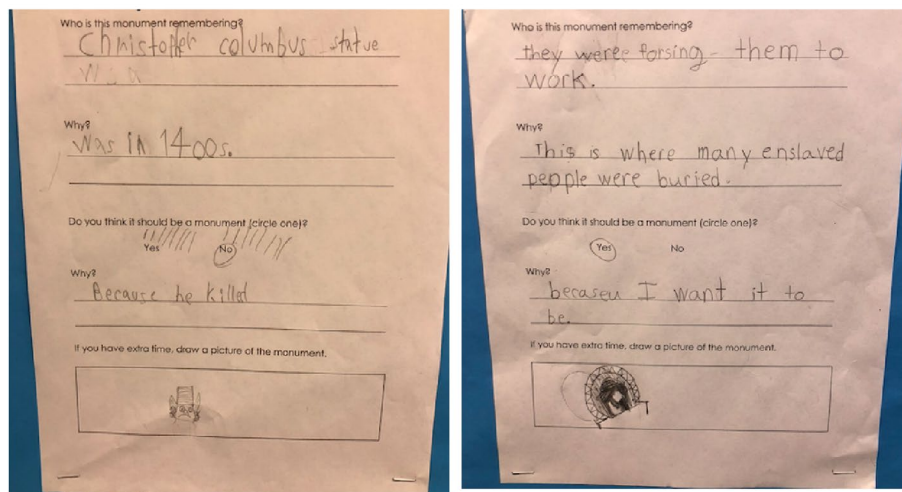 Who is this monument remembering?
Christoffer columbus statue
Why?
Was in 1400s.
Do you think it should be a monument (circle one)?
Yes No
Why?
Because he killed
If you have extra time, draw a picture of the monument.
Who is this monument remembering?
they weree forsing them to
work.
Why?
This is where many enslaved
people were buried.
Do you think it should be a monument (circle one)?
Yes No
Why?
becaseu I want it to
be.
If you have extra time, draw a picture of the monument.